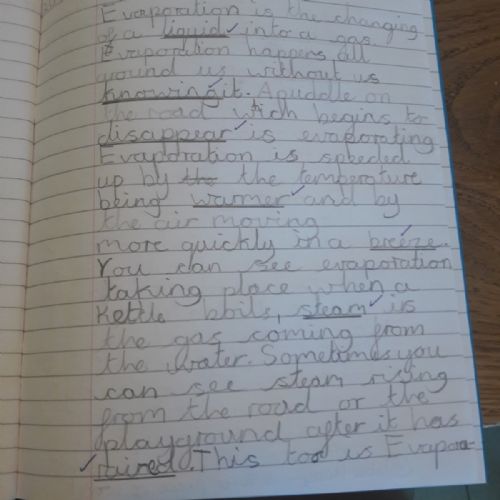 Evaporation is the changing
of a liquid into a gas
Evaporation happens all
around us without us
knowing it. A puddle on
the road wich begins to
disappear is evaporating
Evaporation is speeded
up by the the temperature
being warmer and by
the air moving
more quickly in a breeze.
You can see evaporation
taking place when a
Kettle boils, steam is
the gas coming from
the water. Sometimes you
can see steam rising
from the road or the
playground after it has
rained. This too is Evapora-